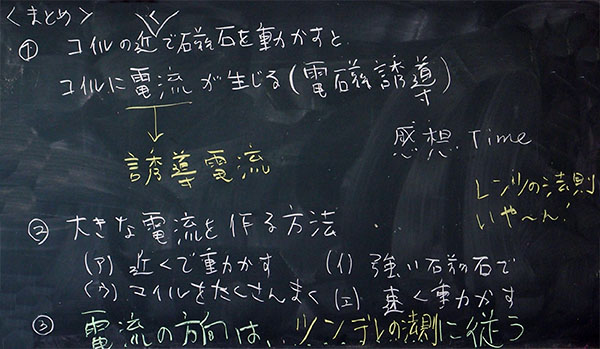 <まとめ>
① コイルの近くで磁石を動かすと
コイルに電流が生じる(電磁誘導)
誘導電流
感想 Time
レンツの法則
いや〜ん!
② 大きな電流を作る方法
(ア) 近くで動かす (イ) 強い磁石で
(ウ) コイルをたくさんまく (エ) 速く動かす
③ 電流の方向は、ツンデレの法則に従う